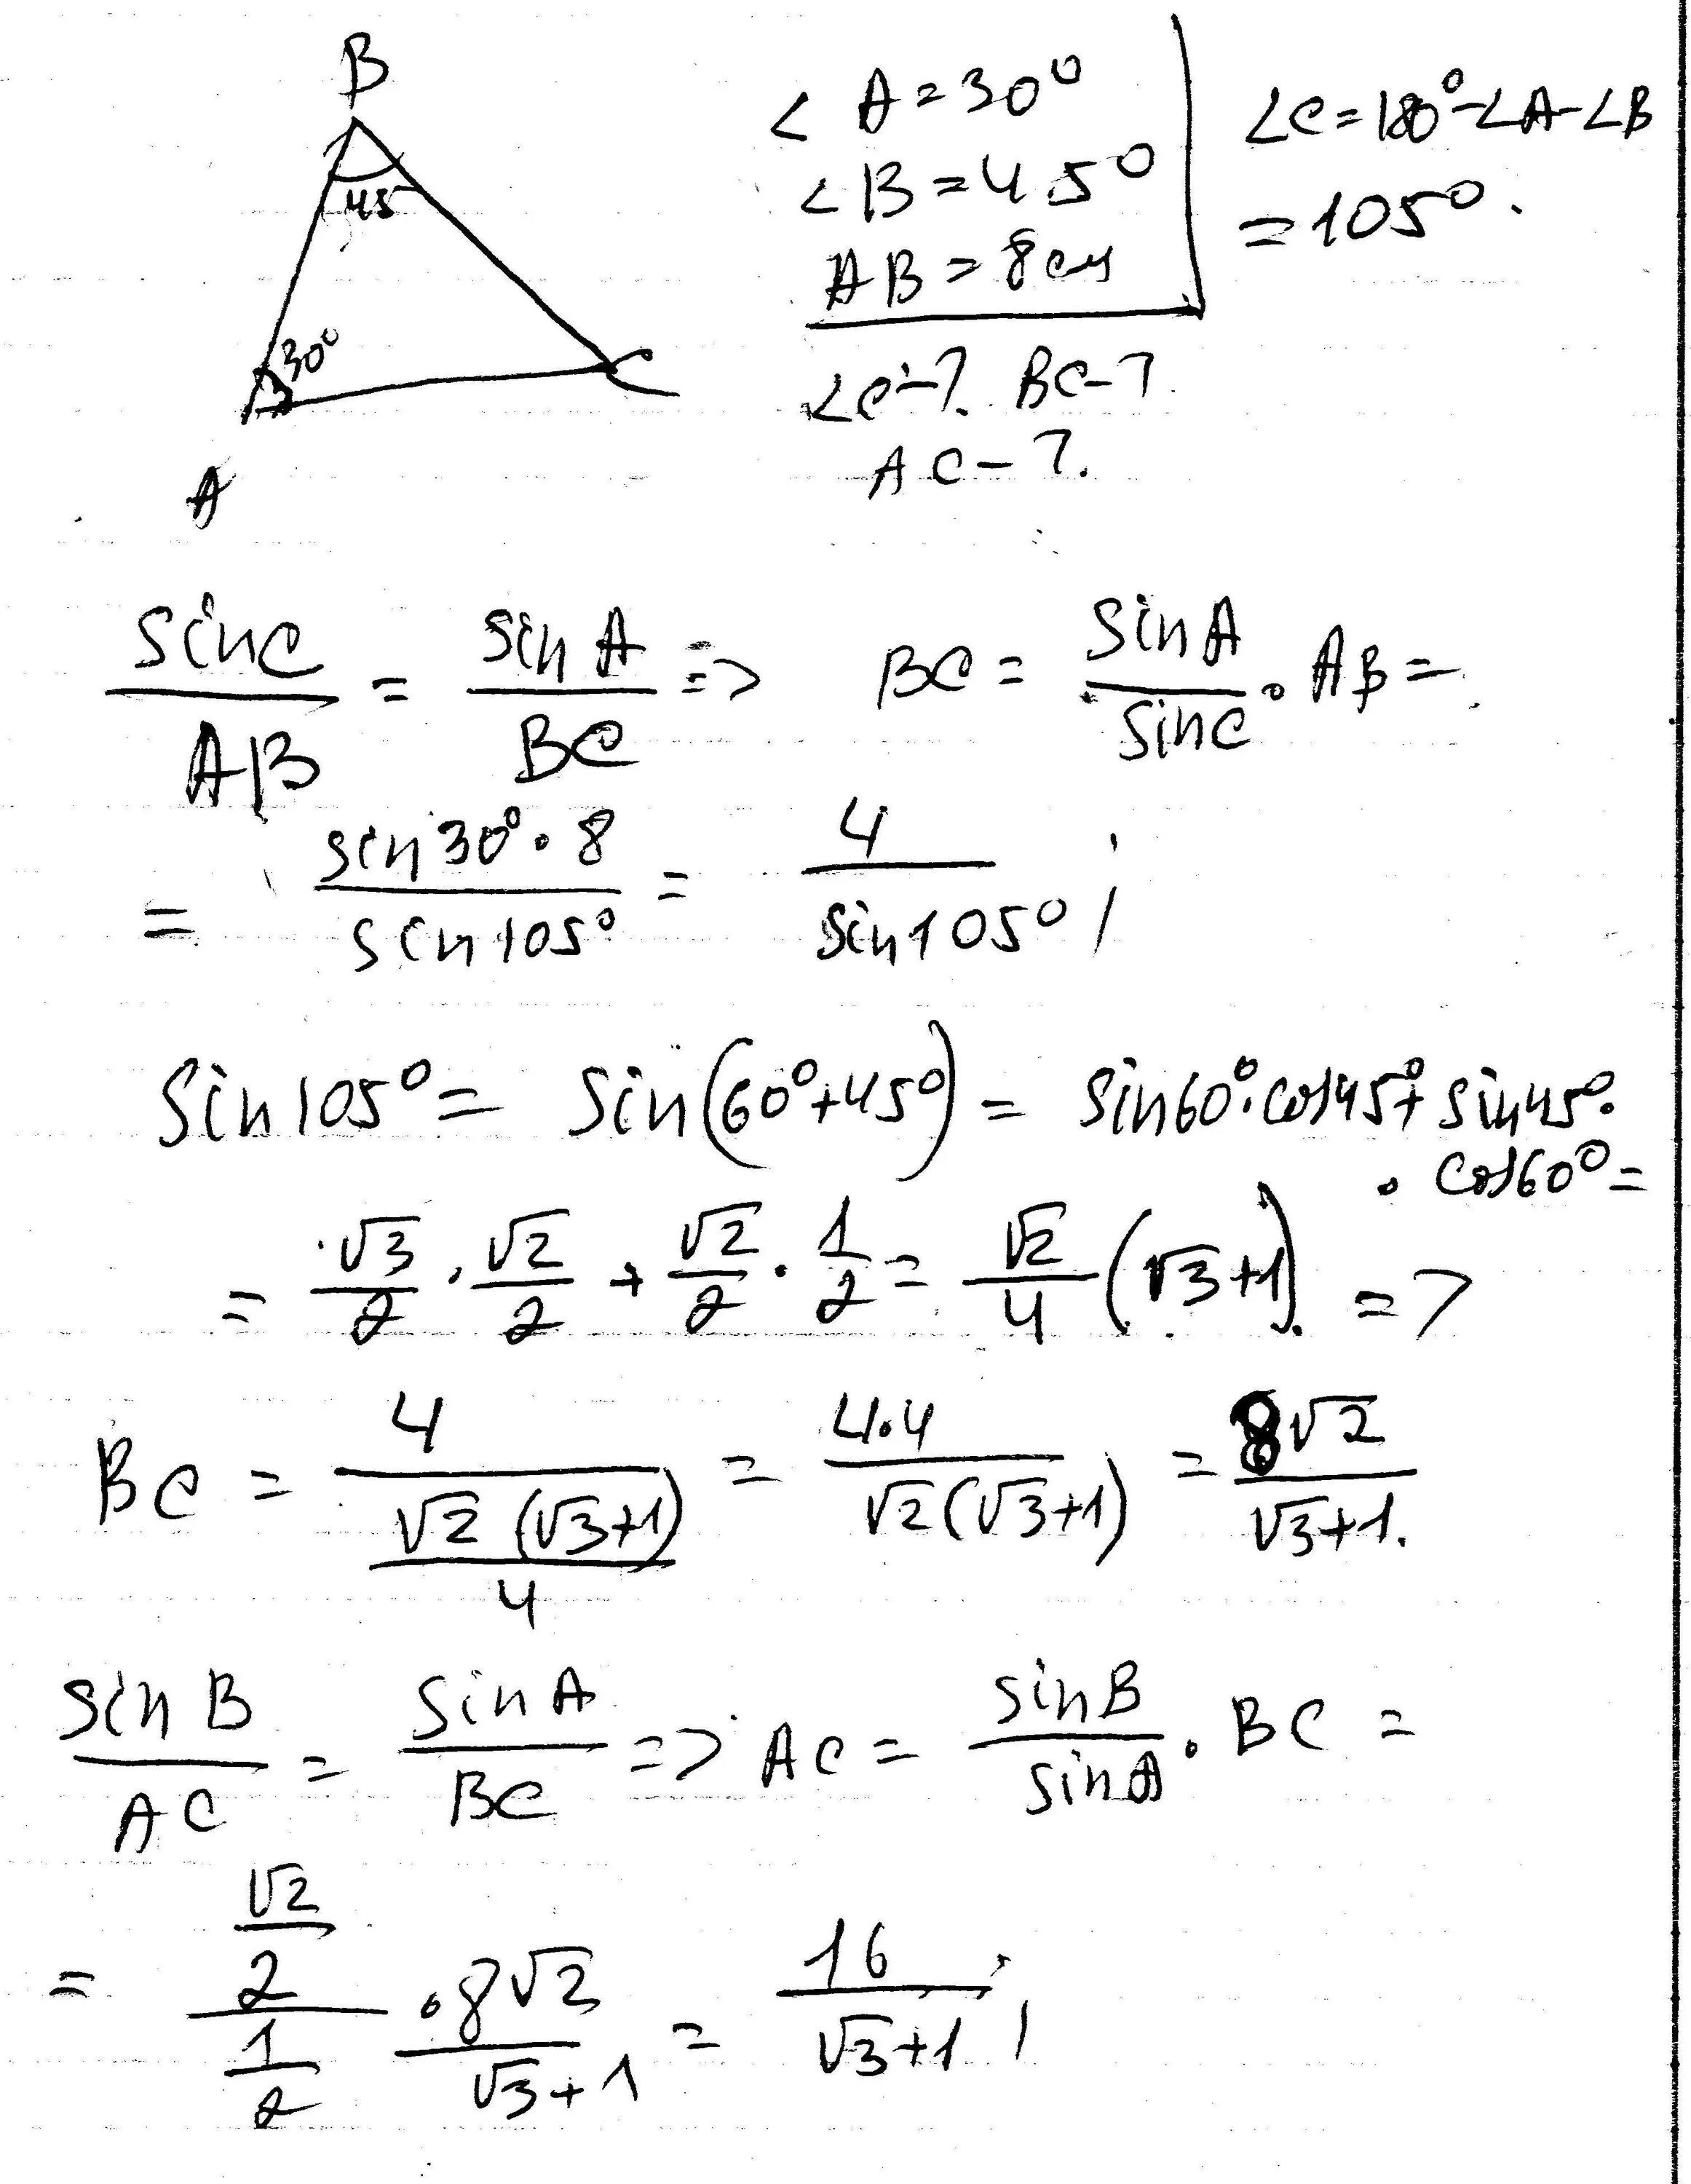 B
45
30°
A
C
∠A=30°
∠B=45°
AB=8см
∠C-? BC-?
AC-?
∠C=180°-∠A-∠B
=105°.
sinC/AB = sinA/BC => BC = sinA/sinC · AB =
= sin30°·8/sin105° = 4/sin105°;
Sin105° = Sin(60°+45°) = Sin60°·cos45°+Sin45°·
· cos60° =
= √3/2 · √2/2 + √2/2 · 1/2 = √2/4 (√3+1). =>
BC = 4/(√2(√3+1)/4) = 4·4/(√2(√3+1)) = 8√2/(√3+1).
sinB/AC = sinA/BC => AC = sinB/sinA · BC =
= (√2/2)/(1/2) · 8√2/(√3+1) = 16/(√3+1);